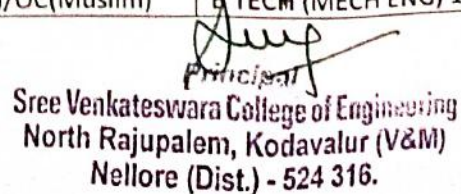 /OC(Muslim) B TECH (MECH ENG)
Principal
Sree Venkateswara College of Engineering
North Rajupalem, Kodavalur (V&M)
Nellore (Dist.) - 524 316.